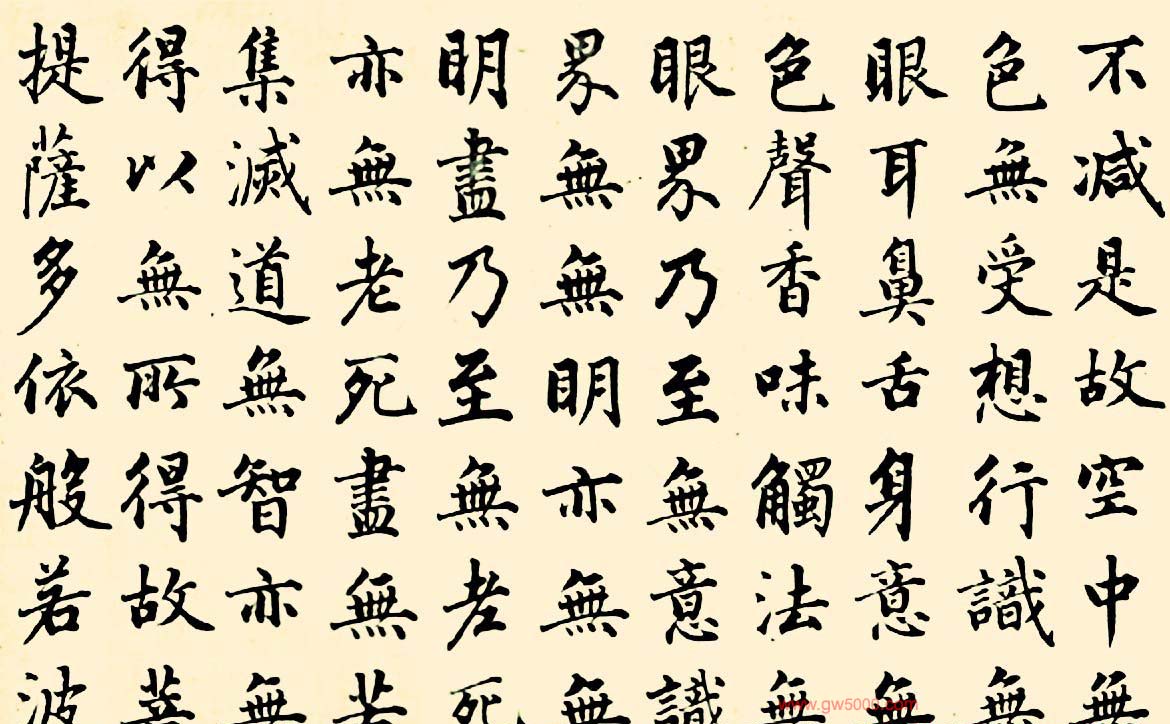 不減是故空中無
色無受想行識無
眼耳鼻舌身意無
色聲香味觸法無
眼界乃至無意識
界無無明亦無無
明盡乃至無老死
亦無老死盡無苦
集滅道無智亦無
得以無所得故菩
提薩多依般若波